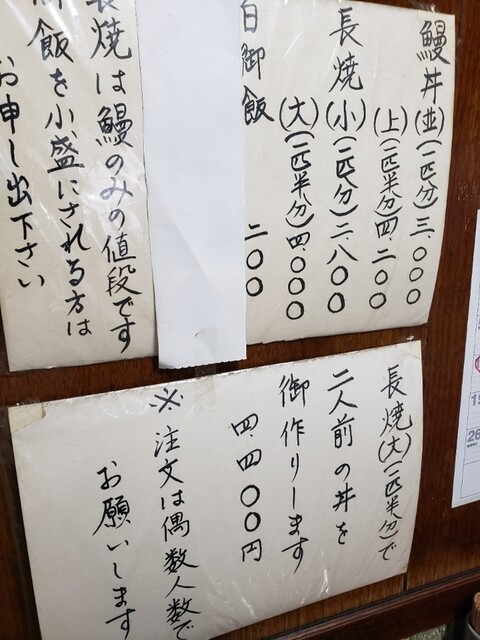 鰻丼(並)(一匹分)三、〇〇〇
(上)(一匹半分)四、二〇〇
長焼(小)(一匹分)二、八〇〇
(大)(一匹半分)四、〇〇〇
白御飯 二〇〇
長焼は鰻のみの値段です
御飯を小盛にされる方は
お申し出下さい
長焼(大)(一匹半分)で
二人前の丼を
御作りします
四、四〇〇円
※注文は偶数人数で
お願いします
26